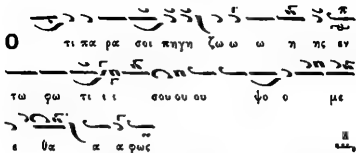 Ο τι πα ρα σοι πηγη ζω ω ω η ης εν
τω φω τι ι ι σου ου ου ψο ο με
ε θα α α φως